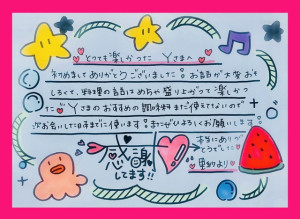 とっても楽しかった Yさまへ
初めましてありがとうございました!!お話が大変おも
しろくて、料理の話はめちゃ盛り上がって楽しかっ
た♡Yさまのおすすめの調味料まだ使えてないので
次お会いしてる日までに使います!!またぜひよろしくお願いします。
感謝
してます!!
本当にありが
とうでした♡
より